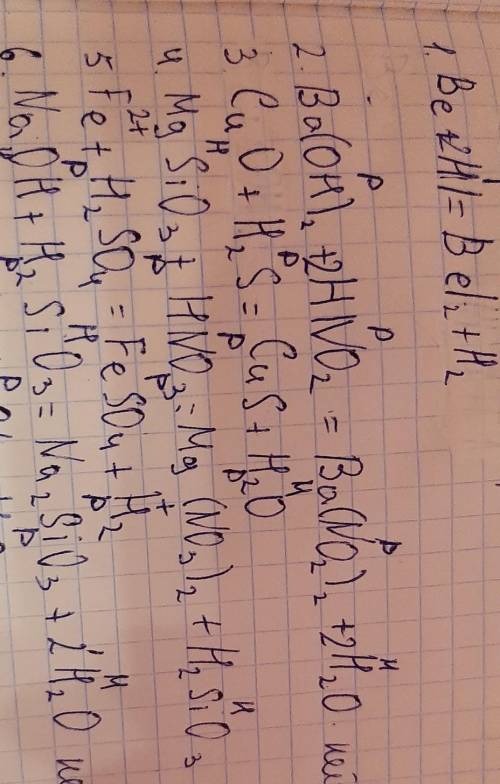 1. Be+2HI = BeI₂ + H₂
2. Ba(OH)₂ + 2HNO₂ = Ba(NO₂)₂ + 2H₂O
3. CuO + H₂S = CuS + H₂O
4. MgSiO₃ + HNO₃ = Mg(NO₃)₂ + H₂SiO₃
5. Fe + H₂SO₄ = FeSO₄ + H₂
6. NaOH + H₂SiO₃ = Na₂SiO₃ + 2H₂O